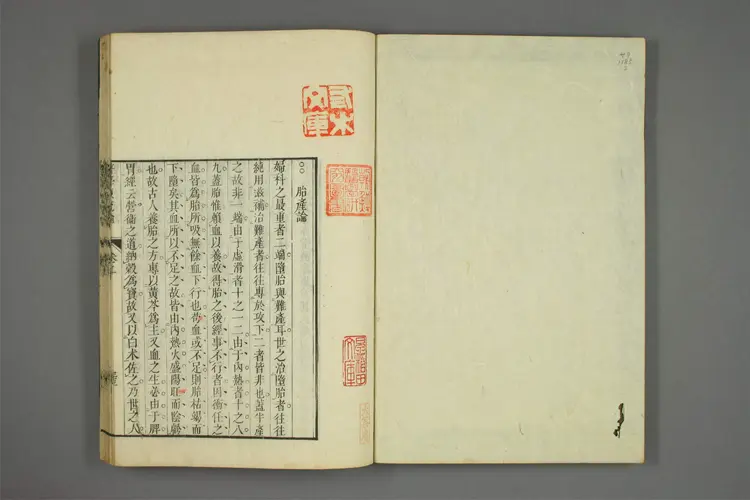 胎產論
婦科之最重者二端墮胎與難產耳世之治墮胎者往往
純用滋補治難產者往往專於攻下二者皆非也蓋半產
之故非一端由于虛滑者十之一二由于內熱者十之八
九蓋胎惟賴血以養故得胎之後經事不行者因衝任之
血皆為胎所吸無餘血下行也苟血或不足則胎枯竭而
下隨矣其血所以不足之故皆由內熱火盛陽旺而陰虧
也故古人養胎之方專以黃芩為主又血之生必由于脾
胃經云營衛之道納穀為寶故又以白朮佐之乃世之人
文庫